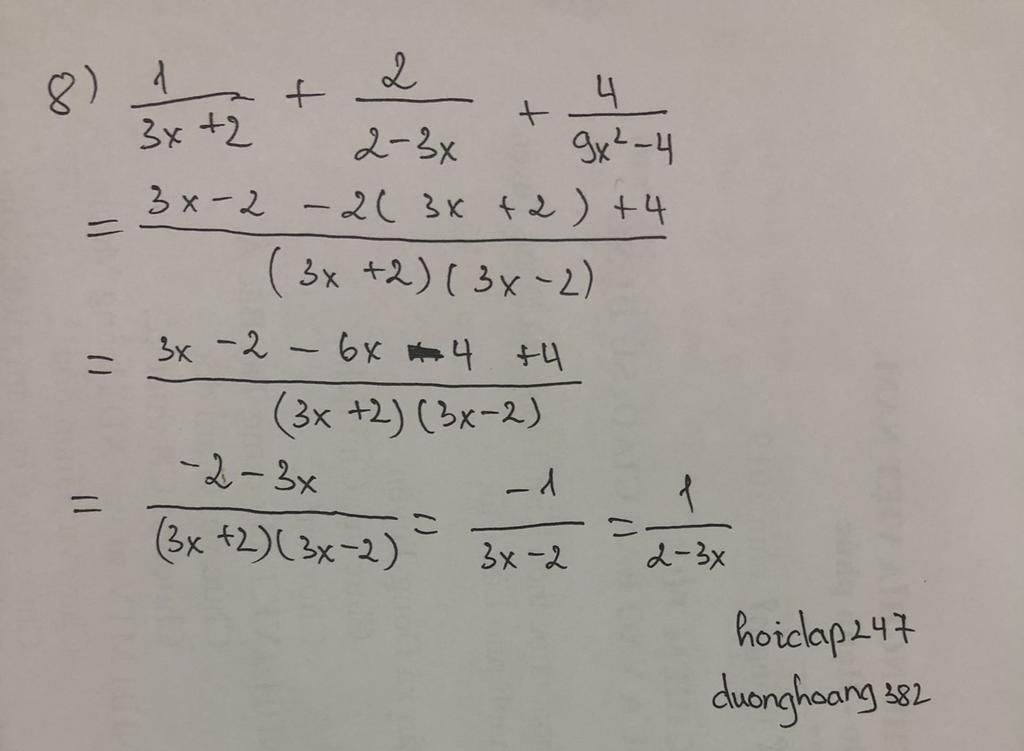 8) 1/(3x+2) + 2/(2-3x) + 4/(9x²-4)
= (3x-2 -2(3x+2)+4)/((3x+2)(3x-2))
= (3x-2-6x-4+4)/((3x+2)(3x-2))
= (-2-3x)/((3x+2)(3x-2)) = -1/(3x-2) = 1/(2-3x)
hoidap247
duonghoang382